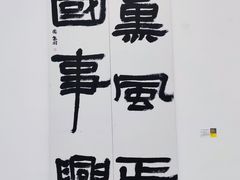 黨風正
國事興